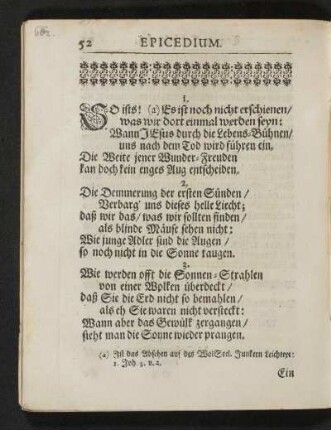 52 EPICEDIUM.
1.
SO ists! (a) Es ist noch nicht erschienen/
was wir dort einmal werden seyn:
Wann JEsus durch die Lebens-Bühnen/
uns nach dem Tod wird führen ein.
Die Weite jener Wunder-Freuden
kan doch kein enges Aug entscheiden.
2.
Die Demmerung der ersten Sünden/
Verbarg' uns dieses helle Liecht;
daß wir das/ was wir sollten finden/
als blinde Mäuse sehen nicht:
Wie junge Adler sind die Augen/
so noch nicht in die Sonne taugen.
3.
Wir werden offt die Sonnen-Strahlen
von einer Wolken überdeckt/
daß Sie die Erd nicht so bemahlen/
als eh Sie waren nicht versteckt:
Wann aber das Gewülk zergangen/
sieht man die Sonne wieder prangen.
(a) Ist das Absehen auf des WolSeel. Junkern Leichtext:
1. Joh 3. v. 2.
Ein